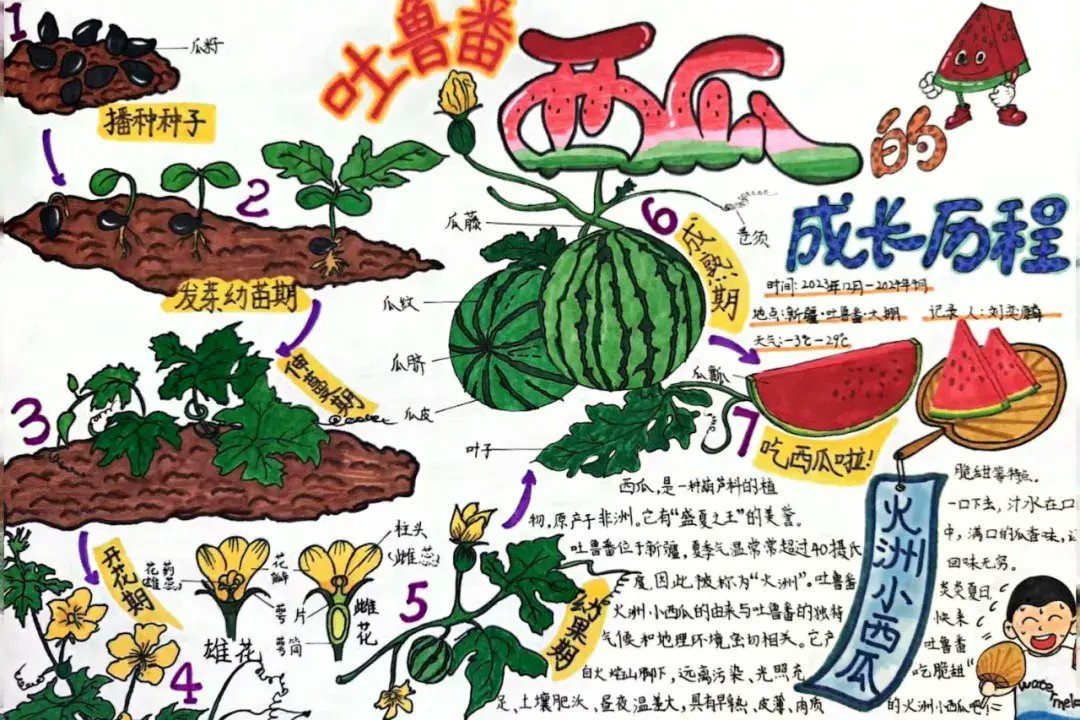 吐鲁番
西瓜
的
成长历程
时间:2023年12月-2024年4月
地点:新疆·吐鲁番·大棚
记录人:刘奕麟
天气:-3℃-29℃
1
瓜籽
播种种子
2
发芽幼苗期
3
伸蔓期
4
开花期
花药
雄蕊
花瓣
萼片
萼筒
柱头
(雌蕊)
雄花
雌花
5
幼果期
6
成熟期
瓜藤
卷须
瓜纹
瓜脐
瓜皮
叶子
7
瓜瓤
吃西瓜啦!
西瓜,是一种葫芦科的植
物,原产于非洲。它有“盛夏之王”的美誉。
吐鲁番位于新疆,夏季气温常常超过40摄氏
度,因此,被称为“火洲”。吐鲁番
火洲小西瓜的由来与吐鲁番的独特
气候和地理环境密切相关。它产
自火焰山脚下,远离污染、光照充
足、土壤肥沃、昼夜温差大,具有早熟、皮薄、肉质
脆甜等特点。
一口下去,汁水在口
中,满口的瓜香味,让
回味无穷。
炎炎夏日,
快来
吐鲁番
吃脆甜
的火洲小西瓜吧!
火洲小西瓜
water
melo